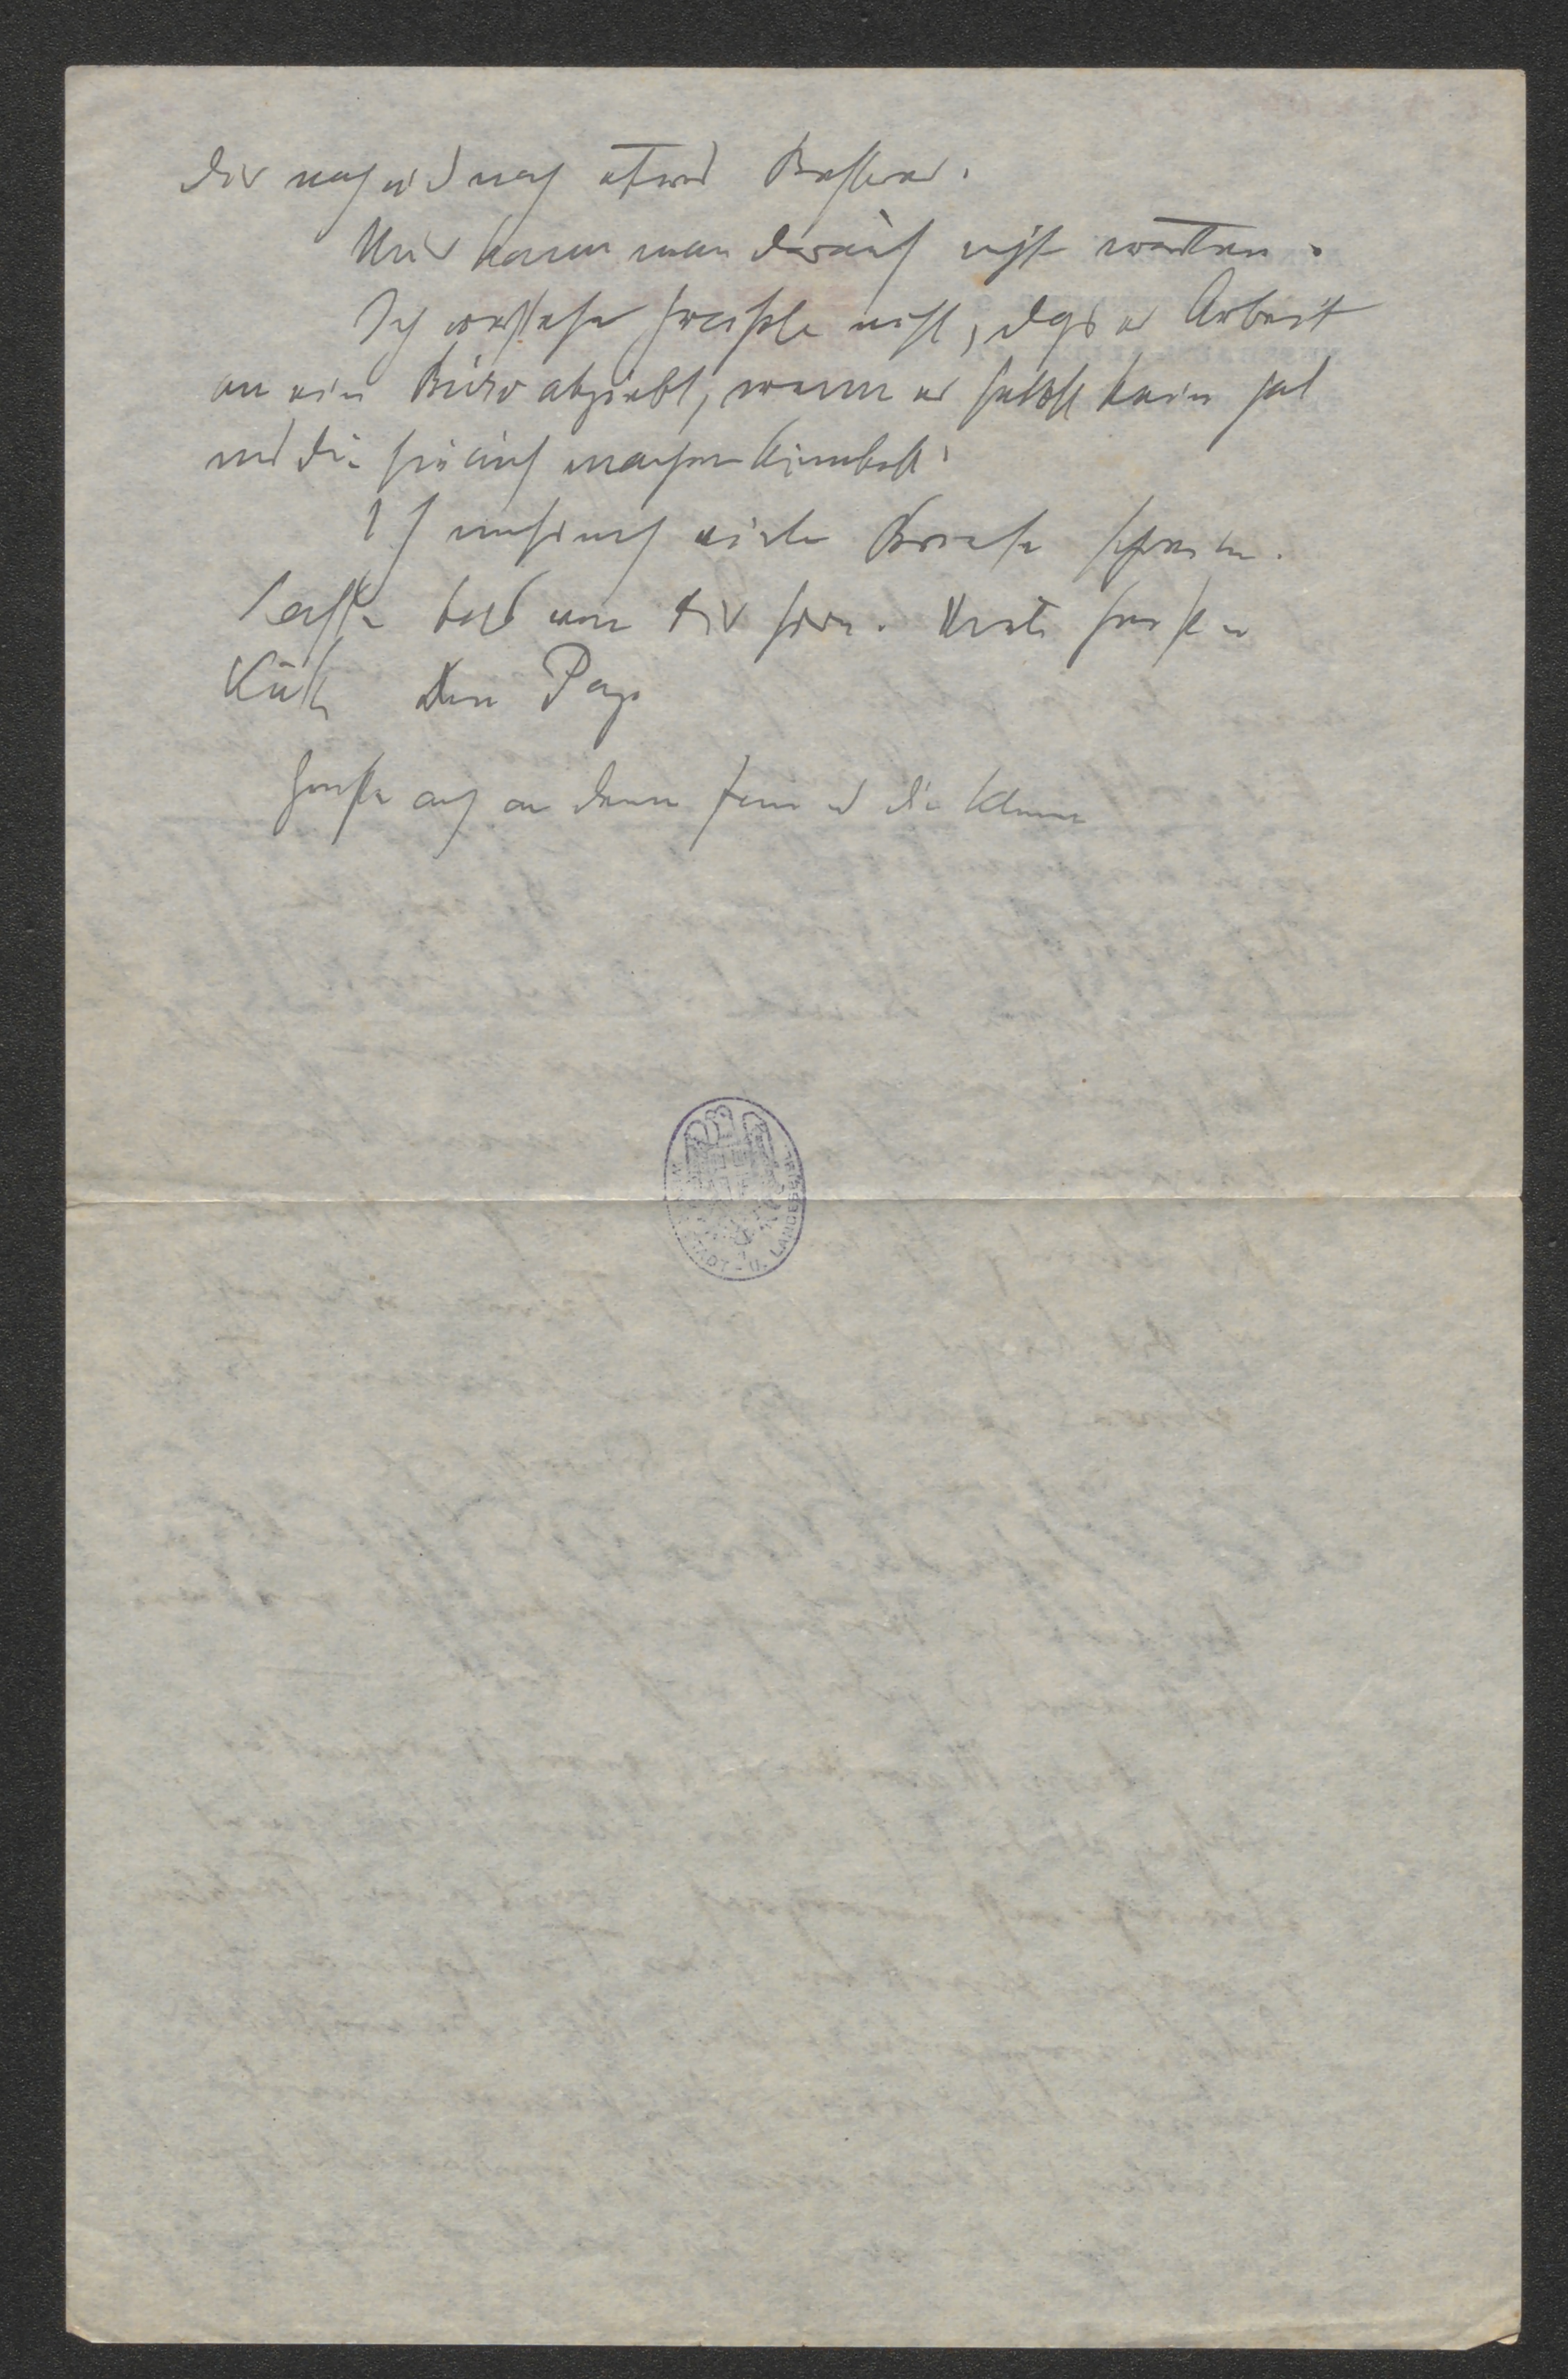 Dir nach und nach etwas Besseres.
Nur kann man darauf nicht warten.
Ich verstehe nicht, dass er Arbeit
an ein Büro abgiebt, wenn er selbst kein hat
und Du sie auch machen könntest.
Ich muss noch viele Briefe schreiben.
Lasse bald von Dir hören. Viele Grüsse u
Küsse Dein Papa
Grüsse auch an Deine Frau u die Kleine
STADT- U. LANDESBIBL